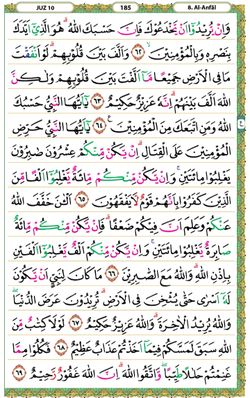 JUZ 10 185 8. Al-Anfâl
وَاِنْ يُّرِيْدُوْٓا اَنْ يَّخْدَعُوْكَ فَاِنَّ حَسْبَكَ اللّٰهُ ۗهُوَ الَّذِيْٓ اَيَّدَكَ
بِنَصْرِهٖ وَبِالْمُؤْمِنِيْنَۙ ٦٢ وَاَلَّفَ بَيْنَ قُلُوْبِهِمْۗ لَوْ اَنْفَقْتَ
مَا فِى الْاَرْضِ جَمِيْعًا مَّآ اَلَّفْتَ بَيْنَ قُلُوْبِهِمْ وَلٰكِنَّ
اللّٰهَ اَلَّفَ بَيْنَهُمْۗ اِنَّهٗ عَزِيْزٌ حَكِيْمٌ ٦٣ يٰٓاَيُّهَا النَّبِيُّ حَسْبُكَ
اللّٰهُ وَمَنِ اتَّبَعَكَ مِنَ الْمُؤْمِنِيْنَ ٦٤ يٰٓاَيُّهَا النَّبِيُّ حَرِّضِ
الْمُؤْمِنِيْنَ عَلَى الْقِتَالِۗ اِنْ يَّكُنْ مِّنْكُمْ عِشْرُوْنَ صٰبِرُوْنَ
يَغْلِبُوْا مِائَتَيْنِۚ وَاِنْ يَّكُنْ مِّنْكُمْ مِّائَةٌ يَّغْلِبُوْٓا اَلْفًا مِّنَ
الَّذِيْنَ كَفَرُوْا بِاَنَّهُمْ قَوْمٌ لَّا يَفْقَهُوْنَ ٦٥ اَلْـٰٔنَ خَفَّفَ اللّٰهُ
عَنْكُمْ وَعَلِمَ اَنَّ فِيْكُمْ ضَعْفًاۗ فَاِنْ يَّكُنْ مِّنْكُمْ مِّائَةٌ
صَابِرَةٌ يَّغْلِبُوْا مِائَتَيْنِۚ وَاِنْ يَّكُنْ مِّنْكُمْ اَلْفٌ يَّغْلِبُوْٓا اَلْفَيْنِ
بِاِذْنِ اللّٰهِۗ وَاللّٰهُ مَعَ الصّٰبِرِيْنَ ٦٦ مَا كَانَ لِنَبِيٍّ اَنْ يَّكُوْنَ
لَهٗٓ اَسْرٰى حَتّٰى يُثْخِنَ فِى الْاَرْضِۗ تُرِيْدُوْنَ عَرَضَ الدُّنْيَاۖ
وَاللّٰهُ يُرِيْدُ الْاٰخِرَةَۗ وَاللّٰهُ عَزِيْزٌ حَكِيْمٌ ٦٧ لَوْلَا كِتٰبٌ مِّنَ
اللّٰهِ سَبَقَ لَمَسَّكُمْ فِيْمَآ اَخَذْتُمْ عَذَابٌ عَظِيْمٌ ٦٨ فَكُلُوْا مِمَّا
غَنِمْتُمْ حَلٰلًا طَيِّبًاۖ وَّاتَّقُوا اللّٰهَۗ اِنَّ اللّٰهَ غَفُوْرٌ رَّحِيْمٌ ٦٩